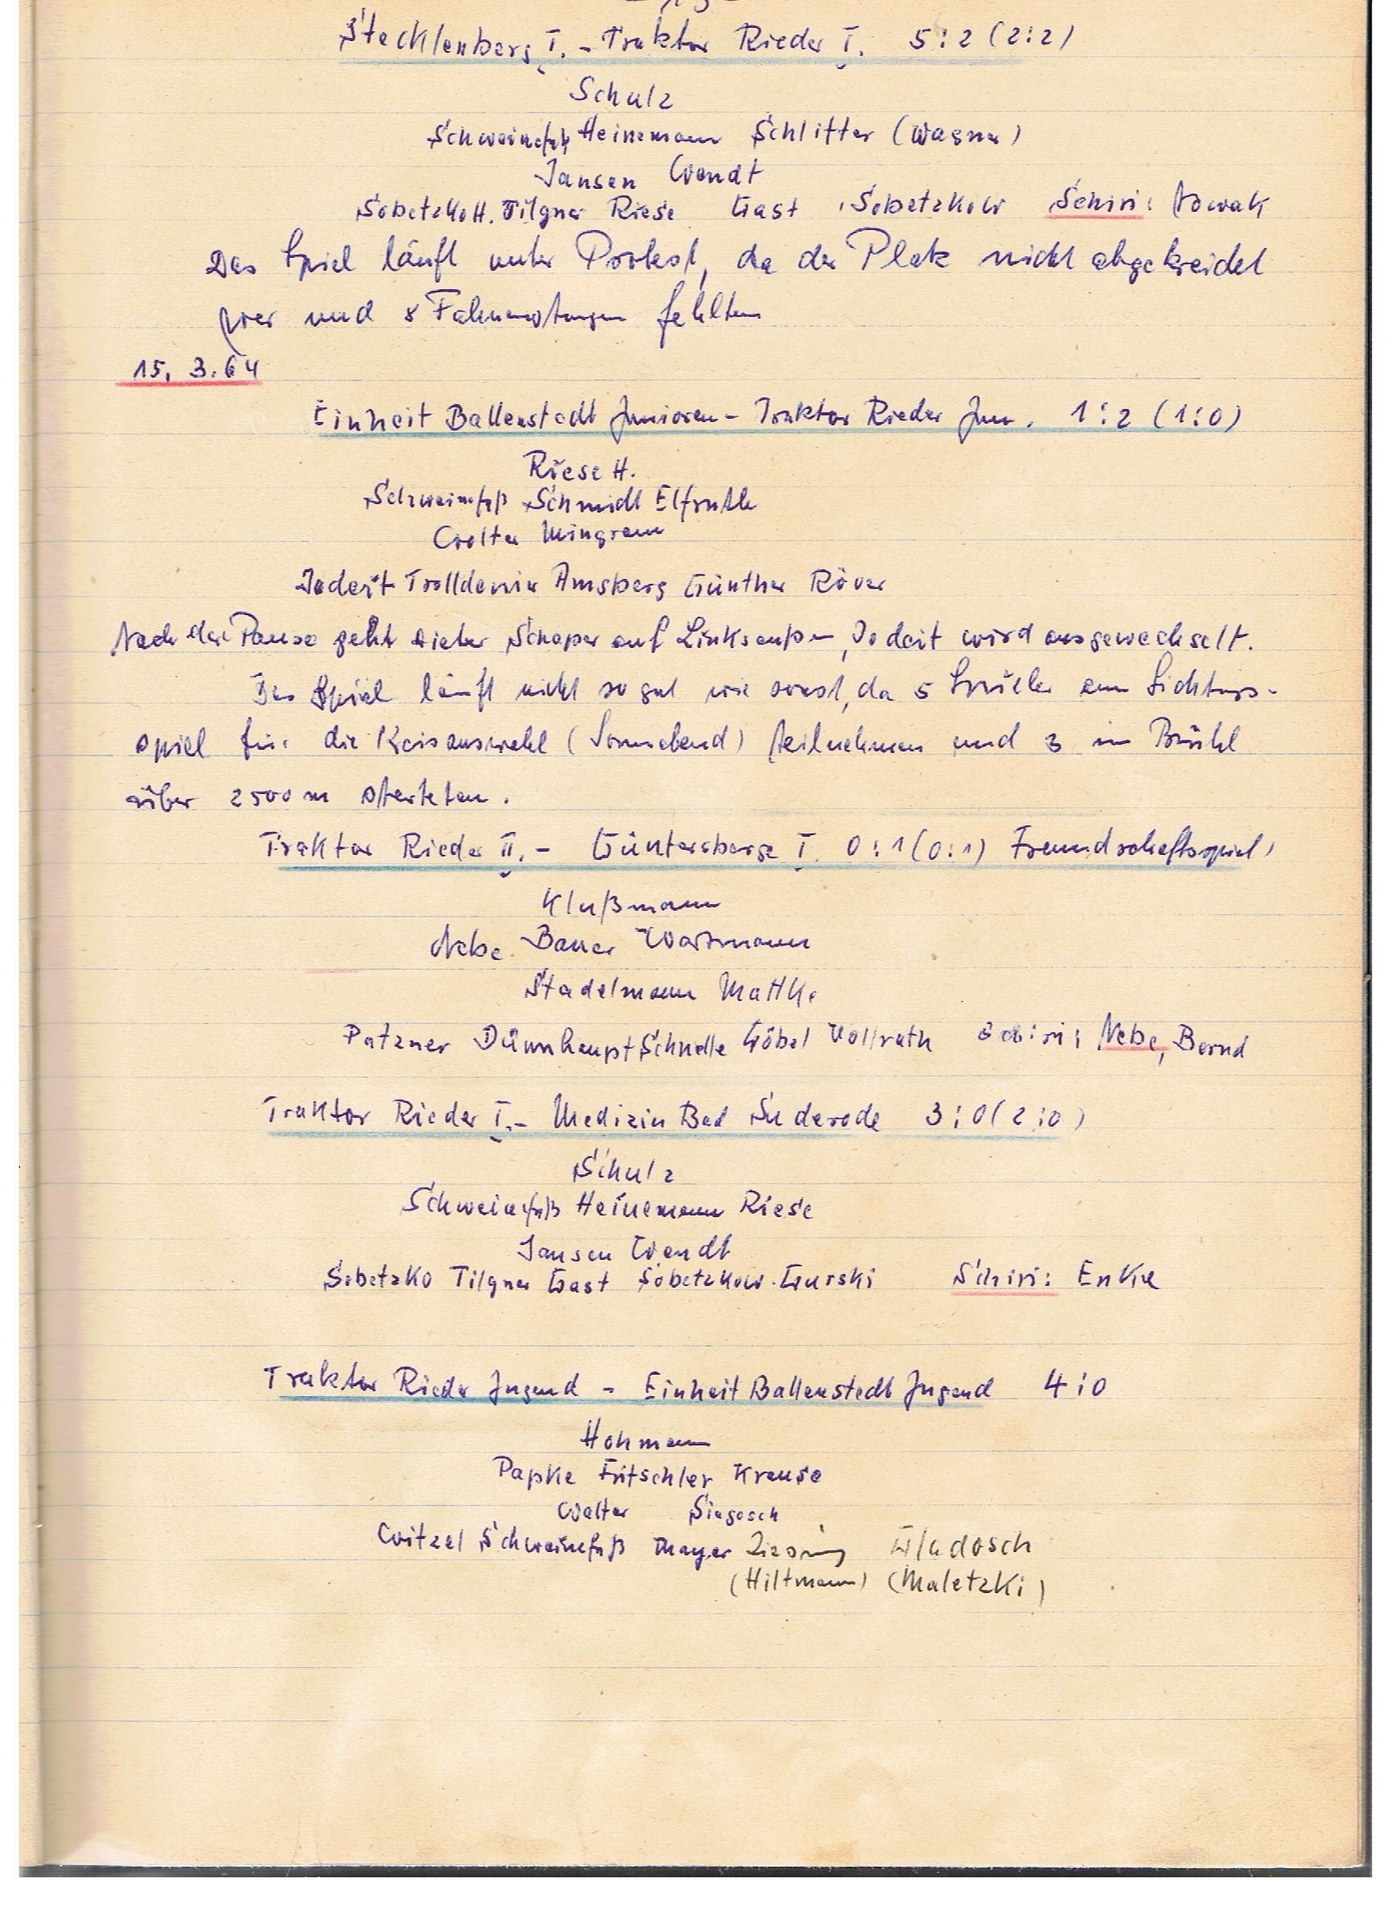 Stecklenberg I. - Traktor Rieder I. 5:2 (2:2)
Schulz
Schweinefuß Heinemann Schlitter (Wagner)
Jansen Wendt
Sobetzko H. Tilgner Riese Gast Sobetzko W Schiri: Nowak
Das Spiel läuft unter Protest, da der Platz nicht abgekreidet
war und 8 fehlten
15. 3. 64
Einheit Ballenstedt Junioren - Traktor Rieder Jun. 1:2 (1:0)
Riese H.
Schweinefuß Schmidt Elfruth
Wolter Mingram
Jodeit Trolldenier Amsberg Günther Röver
Nach der Pause geht Schaper auf Linksaußen, Jodeit wird ausgewechselt.
Das Spiel läuft nicht so gut wie sonst, da 5 Spieler am Sichtungs-
spiel für die Kreisauswahl (Sonnabend) teilnehmen und 3 im Brühl
über 2500 m starteten.
Traktor Rieder II. - Güntersberge I. 0:1 (0:1) Freundschaftsspiel
Klußmann
Nebe Bauer Wortmann
Stadelmann Mattke
Patzner Dünnhaupt Schnelle Göbel Vollrath Schiri: Nebe, Bernd
Traktor Rieder I. - Medizin Bad Suderode 3:0 (2:0)
Schulz
Schweinefuß Heinemann Riese
Jansen Wendt
Sobetzko Tilgner Gast Sobetzko W. Gurski Schiri: Enke
Traktor Rieder Jugend - Einheit Ballenstedt Jugend 4:0
Hohmann
Papke Fritschler Krause
Walter Siegosch
Witzel Schweinefuß Mayer Ziesing Gladosch
(Hiltmann) (Maletzki)